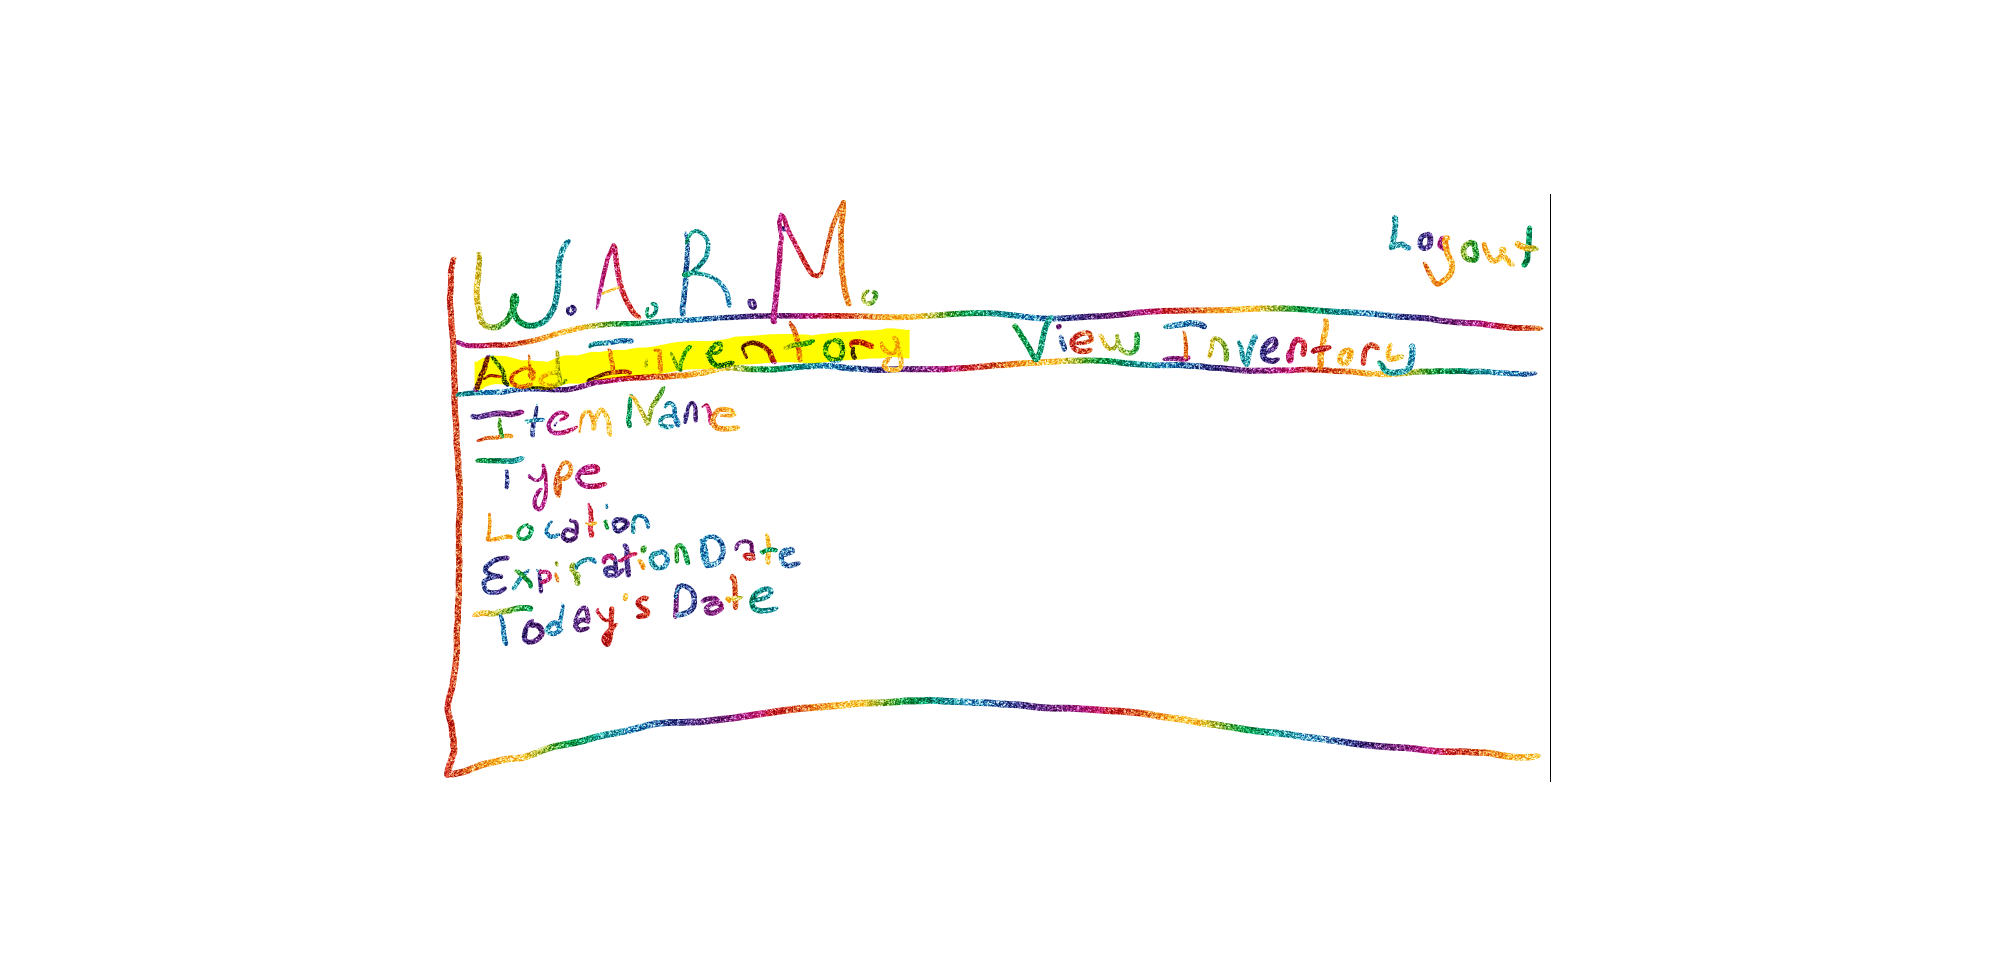 W.A.R.M.
Logout
Add Inventory
View Inventory
Item Name
Type
Location
Expiration Date
Today's Date